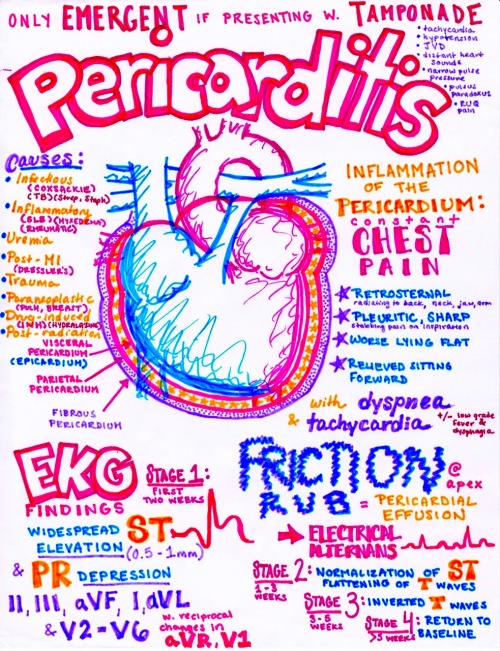 ONLY EMERGENT IF PRESENTING W. TAMPONADE
• tachycardia
• hypotension
• JVD
• distant heart
sounds
• narrow pulse
pressure
• pulsus
paradoxus
• RUQ
pain
Pericarditis
Causes:
• Infectious
(COXSACKIE)
(TB)(Strep, Staph)
• Inflammatory
(SLE)
(RHEUMATIC)
• Uremia
• Post-MI
(DRESSLER'S)
• Trauma
• Paraneoplastic
(PULM, BREAST)
• Drug-induced
(INH)(HYDRALAZINE)
• Post-radiation
VISCERAL
PERICARDIUM
(EPICARDIUM)
PARIETAL
PERICARDIUM
FIBROUS
PERICARDIUM
INFLAMMATION
OF THE
PERICARDIUM:
constant
CHEST
PAIN
RETROSTERNAL
radiating to back, neck, jaw, arm
PLEURITIC, SHARP
stabbing pain on inspiration
WORSE LYING FLAT
RELIEVED SITTING
FORWARD
with dyspnea
& tachycardia
+/- low grade
fever &
dysphagia
EKG
FINDINGS
STAGE 1:
FIRST
TWO WEEKS
WIDESPREAD ST
ELEVATION (0.5-1mm)
& PR DEPRESSION
II, III, aVF, I, aVL
& V2-V6
w. reciprocal
changes in
aVR, V1
FRICTION
RUB
@
apex
= PERICARDIAL
EFFUSION
ELECTRICAL
ALTERNANS
STAGE 2: NORMALIZATION OF ST
1-3
WEEKS
FLATTENING OF T WAVES
STAGE 3: INVERTED T WAVES
3-5
WEEKS
STAGE 4: RETURN TO
>5 WEEKS
BASELINE